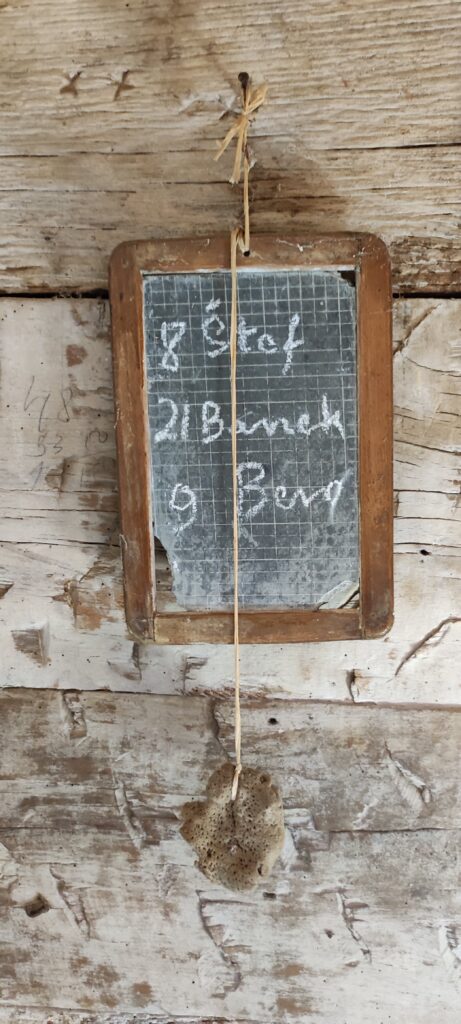 8 Štef
21 Banek
9 Berg
48
53